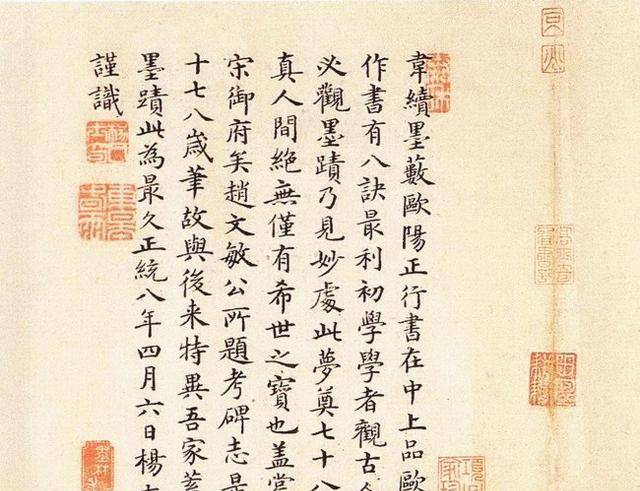 韋續墨藪歐陽正行書在中上品歐
作書有八訣最利初學學者觀古
必觀墨蹟乃見妙處此夢奠七十八
真人間絕無僅有希世之寶也蓋嘗
宋御府矣趙文敏公所題考碑志是
十七八歲筆故與後来特異吾家蓄
墨蹟此為最久正統八年四月六日楊
謹識